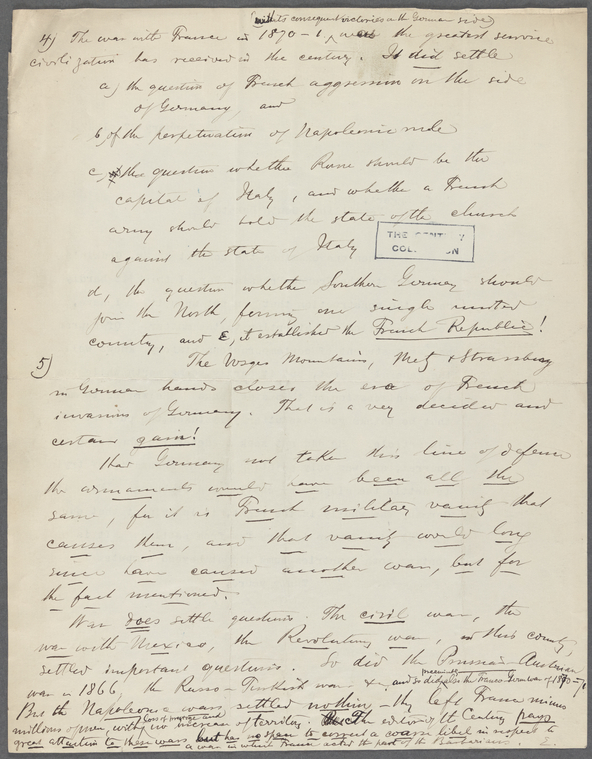 (with its consequent victories on the German side)
4) The war with France in 1870-1, was the greatest service
civilization has received in the century. It did settle
a) the question of French aggression on the side
of Germany, and
b, of the perpetuation of Napoleonic rule
c, the question whether Rome should be the
capital of Italy, and whether a French
army should hold the state of the church
against the state of Italy
THE CENTURY
COLLECTION
d, the question whether Southern Germany should
join the North, forming one single united
country, and E, it established the French Republic!
5) The Vosges Mountains, Metz & Strassburg
in German hands closes the era of French
invasions of Germany. That is a very decided and
certain gain!
Had Germany not taken this line of defense
the armaments would have been all the
same, for it is French military vanity that
causes them, and that vanity would long
since have caused another war, but for
the fact mentioned.
War does settle questions. The civil war, the
war with Mexico, the Revolutionary war, in this country,
settled important questions. So did the Prussian-Austrian
war in 1866, the Russo-Turkish war &c. and so did the Franco German war of 1870-71
But the Napoleonic wars settled nothing - they left France minus
millions of men, with loss of prestige and no increase of territory. The editor of the Century pays
great attention to these wars but has no to correct a coarse libel in respect to
a war in which France acted the part of the Barbarians. E.